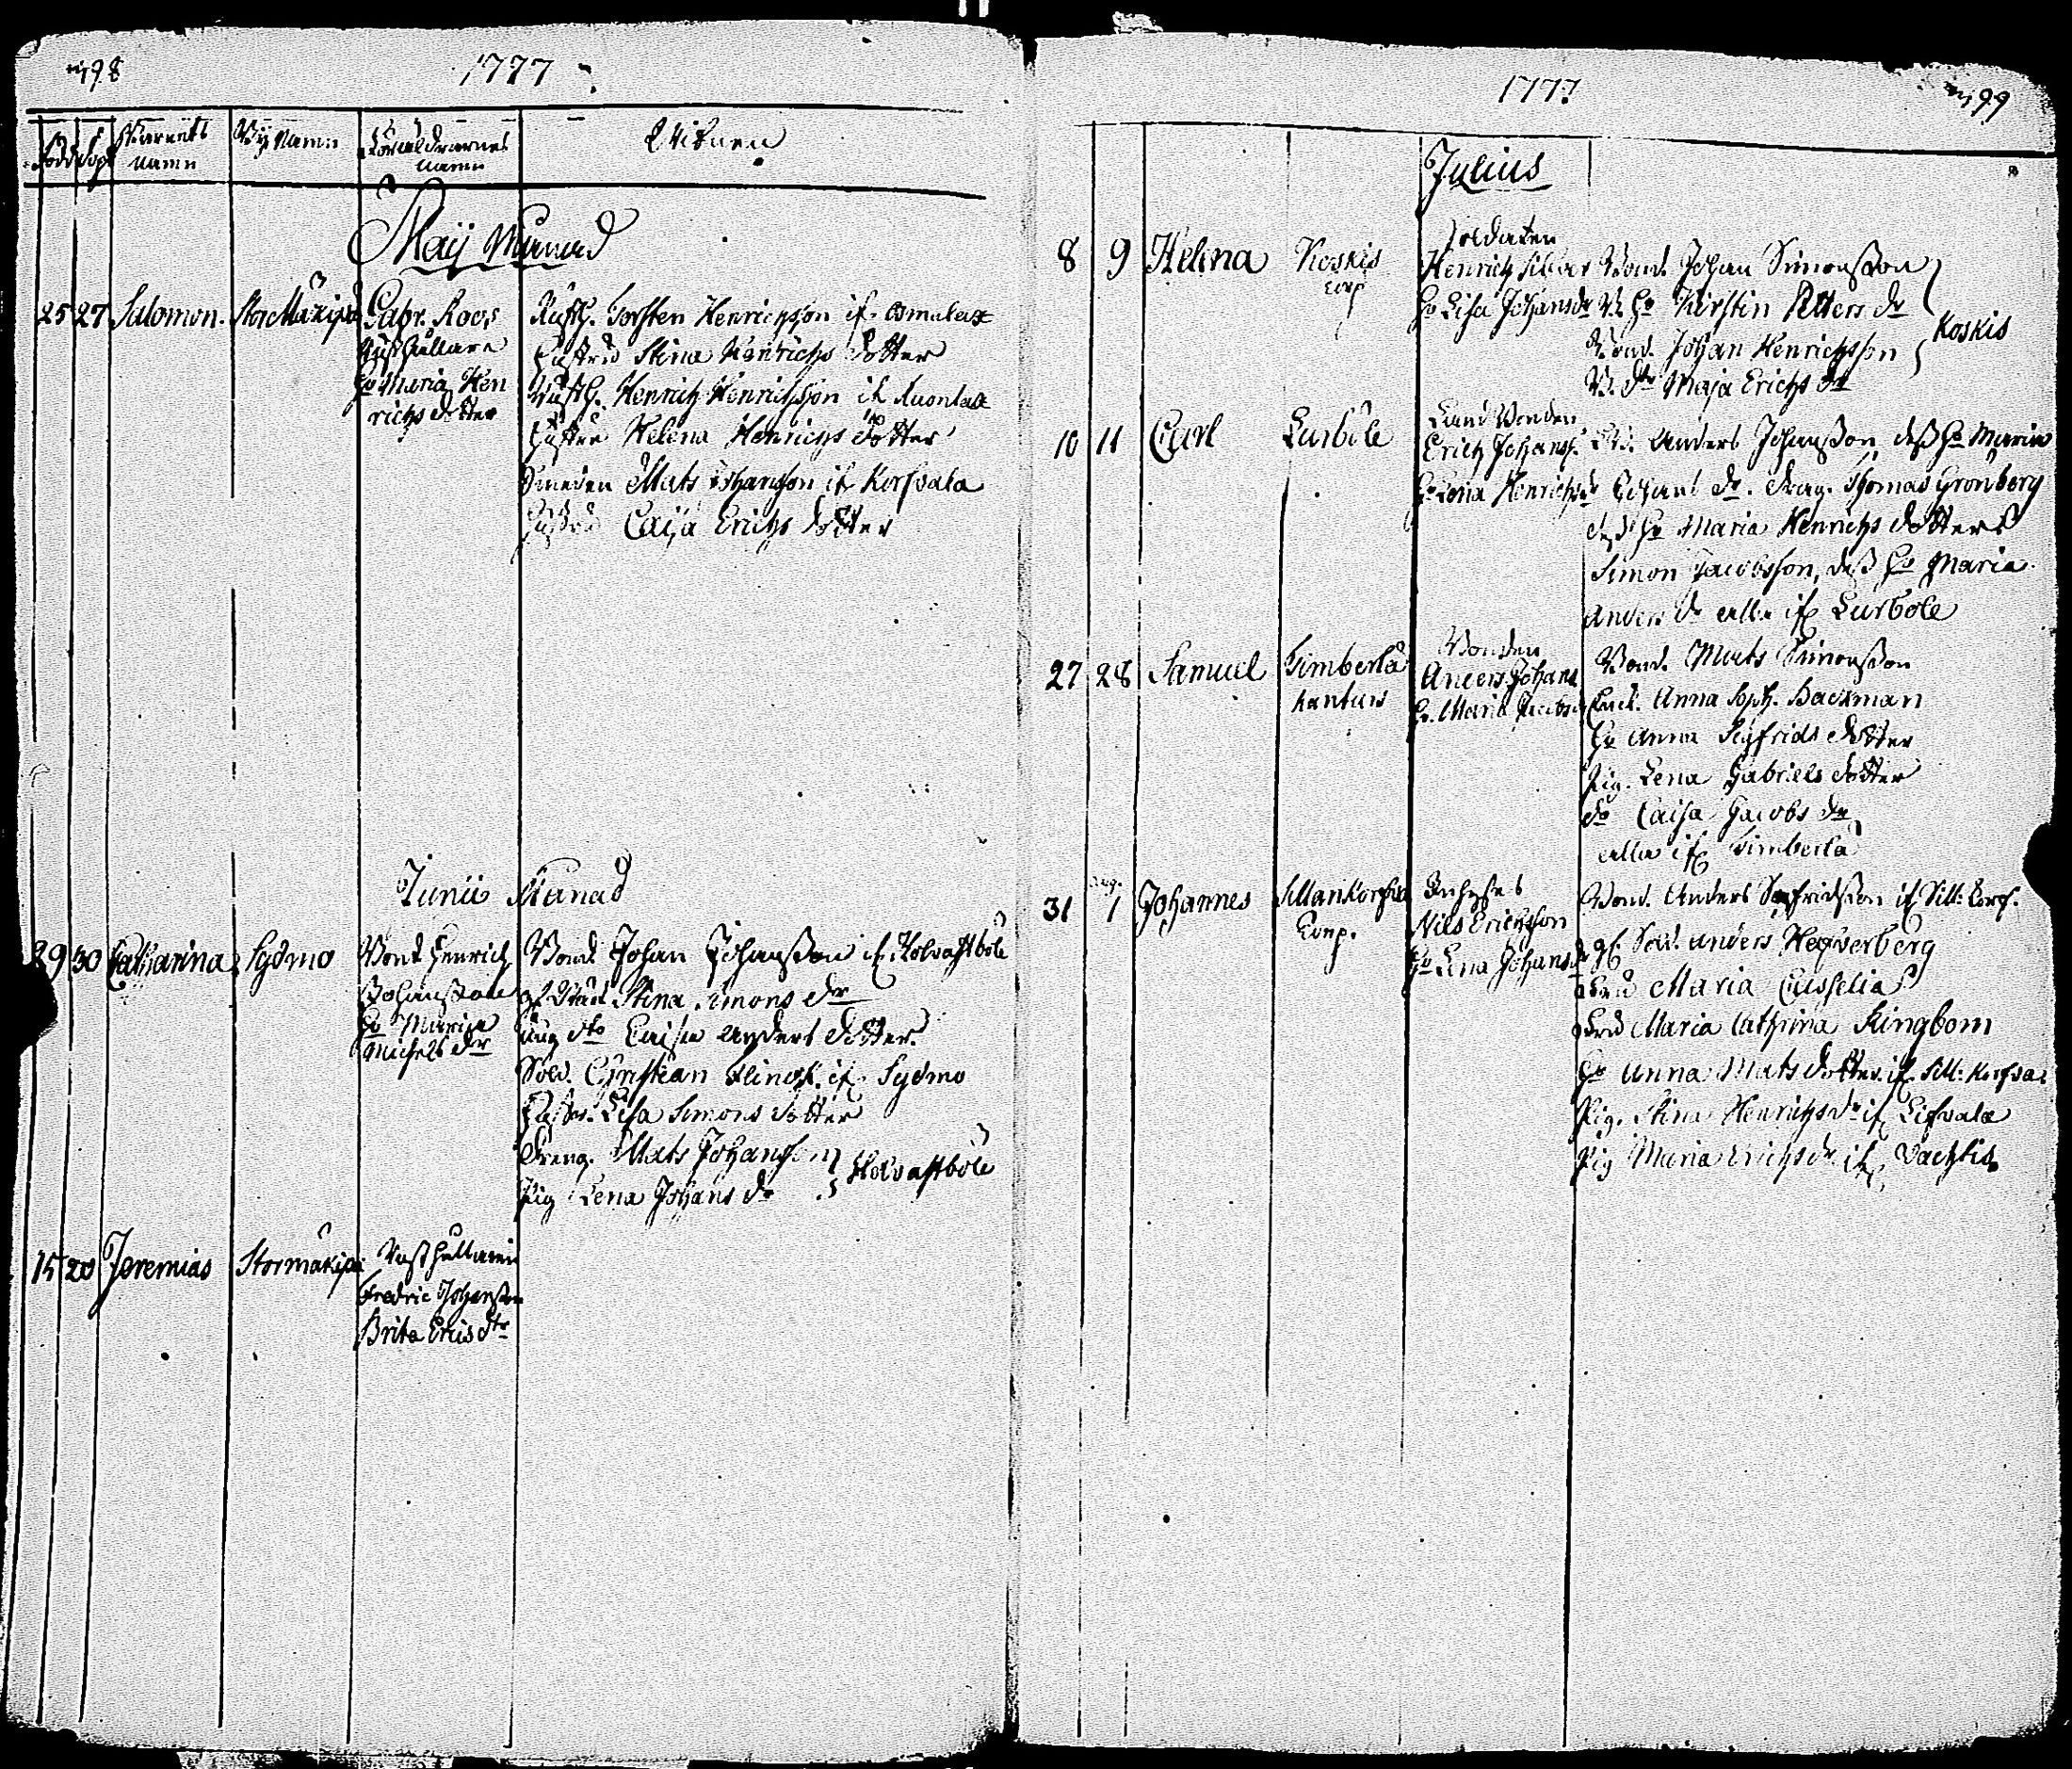 198
1777
Född
Döpt
Barnets
namn
By Namn
Föräldrarnes
namn
Vitnen
Maij Månad
25 27 Salomon. Stor Mäkipä Gabr. Roos
Rusthållare
Ho Maria Hen
richs dotter
Rusth. Torsten Henrichsson if
Hustru Stina Henrichs dotter
Rusth. Henrich Henrichsson if
Hustru Helena Henrichs dotter
Smeden Mats Johansson if Korsvala
Hustru Caisa Erichs dotter
Junii Månad
29 30 Catharina Sydmo Bond. Henrich
Johansson
Ho Maria
Michels dr
Bond. Johan Johansson if Kolvastböle
Stina Simons dr
Caisa Anders dotter
Sold. Christian if Sydmo
Hustr. Lisa Simons dotter
Dreng. Mats Johansson
Pig Lena Johans dr
Kolvastböle
15 20 Jeremias Stormäkipä Rusthållaren
Fredric Johansson
Brita Erics dtr
1777
199
Julius
8 9 Helena Koskis
torp
Soldaten
Henrich
Ho Lisa Johansdr
Bond. Johan Simonsson
Ho Kirstin Petters dr
Bond. Johan Henrichsson
Maja Erichs dr
Koskis
10 11 Carl Lurböle
Land Bonden
Erich Johanss.
Ho Lena Henrichsdr
Anders Johansson, dess Ho Maria
Johans dr. dreng. Thomas Grönberg
dess Ho Maria Henrichs dotter
Simon Jacobsson, dess Ho Maria
Anders dr alla if Lurböle
27 28 Samuel Gimberla
hantars
Bonden
Anders Johans
Ho. Maria Jacobs
Bond. Mats Simonsson
Anna Soph. Backman
Ho Anna Sigfrids dotter
Pig. Lena Gabriels dotter
do Caisa Jacobs dr
alla if Gimberla
31 Aug. 1 Johannes
Torp.
Nils Erichsson
Ho Lena Johansdr
Bond. Anders Sigfridsson if Sill: Korf.
Sold. Anders Hagverberg
Maria Cusselia
Maria Cathrina Ringbom
Ho Anna Mats dotter if Sill: Korsvai
Pig. Stina Henrichsdr if Lifvala
Pig Maria Erichsdr if Vachtis